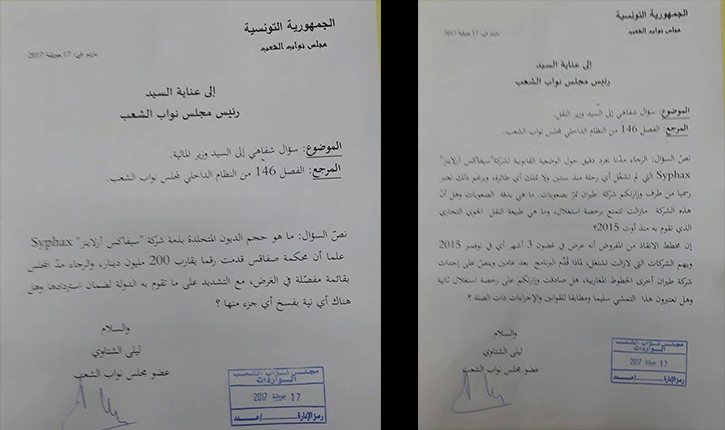 الجمهورية التونسية
مجلس نواب الشعب
باردو في: 17 جويلية 2017
إلى عناية السيد
رئيس مجلس نواب الشعب
الموضوع: سؤال شفاهي إلى السيد وزير المالية.
المرجع: الفصل 146 من النظام الداخلي لمجلس نواب الشعب.
نصّ السؤال: ما هو حجم الديون المتخلدة بذمة شركة "سيفاكس آرلاينز" Syphax
علما أن محكمة صفاقس قدمت رقما يقارب 200 مليون دينار، والرجاء مدّ المجلس
بقائمة مفصّلة في الغرض، مع التشديد على ما تقوم به الدولة لضمان استردادها وهل
هناك أي نية بفسخ أي جزء منها ؟
والسلام
ليلى الشتاوي
عضو مجلس نواب الشعب
مجلس نواب الشعب
الـواردات
17 جويلية 2017
رمز الإدارة........../عـــدد
الجمهورية التونسية
مجلس نواب الشعب
باردو في: 17 جويلية 2017
إلى عناية السيد
رئيس مجلس نواب الشعب
الموضوع: سؤال شفاهي إلى السيد وزير النقل.
المرجع: الفصل 146 من النظام الداخلي لمجلس نواب الشعب.
نصّ السؤال: الرجاء مدّنا بجرد دقيق حول الوضعية القانونية لشركة "سيفاكس آرلاينز"
Syphax التي لم تشغّل أي رحلة منذ سنتين ولا تملك أي طائرة، وبرغم ذلك تعتبر
رسميا من طرف وزارتكم شركة طيران تمرّ بصعوبات. ما هي بدقة الصعوبات وهل أنّ
هذه الشركة مازالت تتمتع برخصة استغلال، وما هي طبيعة النقل الجوي التجاري
الذي تقوم به منذ أوت 2015؟
إن مخطط الانقاذ من المفروض أنه عرض في غضون 3 أشهر أي في نوفمبر 2015
ويهم الشركات التي لازالت تشتغل، لماذا قُدّم البرنامج بعد عامين وينصّ على إحداث
شركة طيران أخرى الخطوط المغاربية، هل صادقت وزارتكم على رخصة استغلال ثانية
وهل تعتبرون هذا التمشي سليما ومطابقا للقوانين والإجراءات ذات الصلة ؟
والسلام
ليلى الشتاوي
عضو مجلس نواب الشعب
مجلس نواب الشعب
الـواردات
17 جويلية 2017
رمز الإدارة........../عـــدد